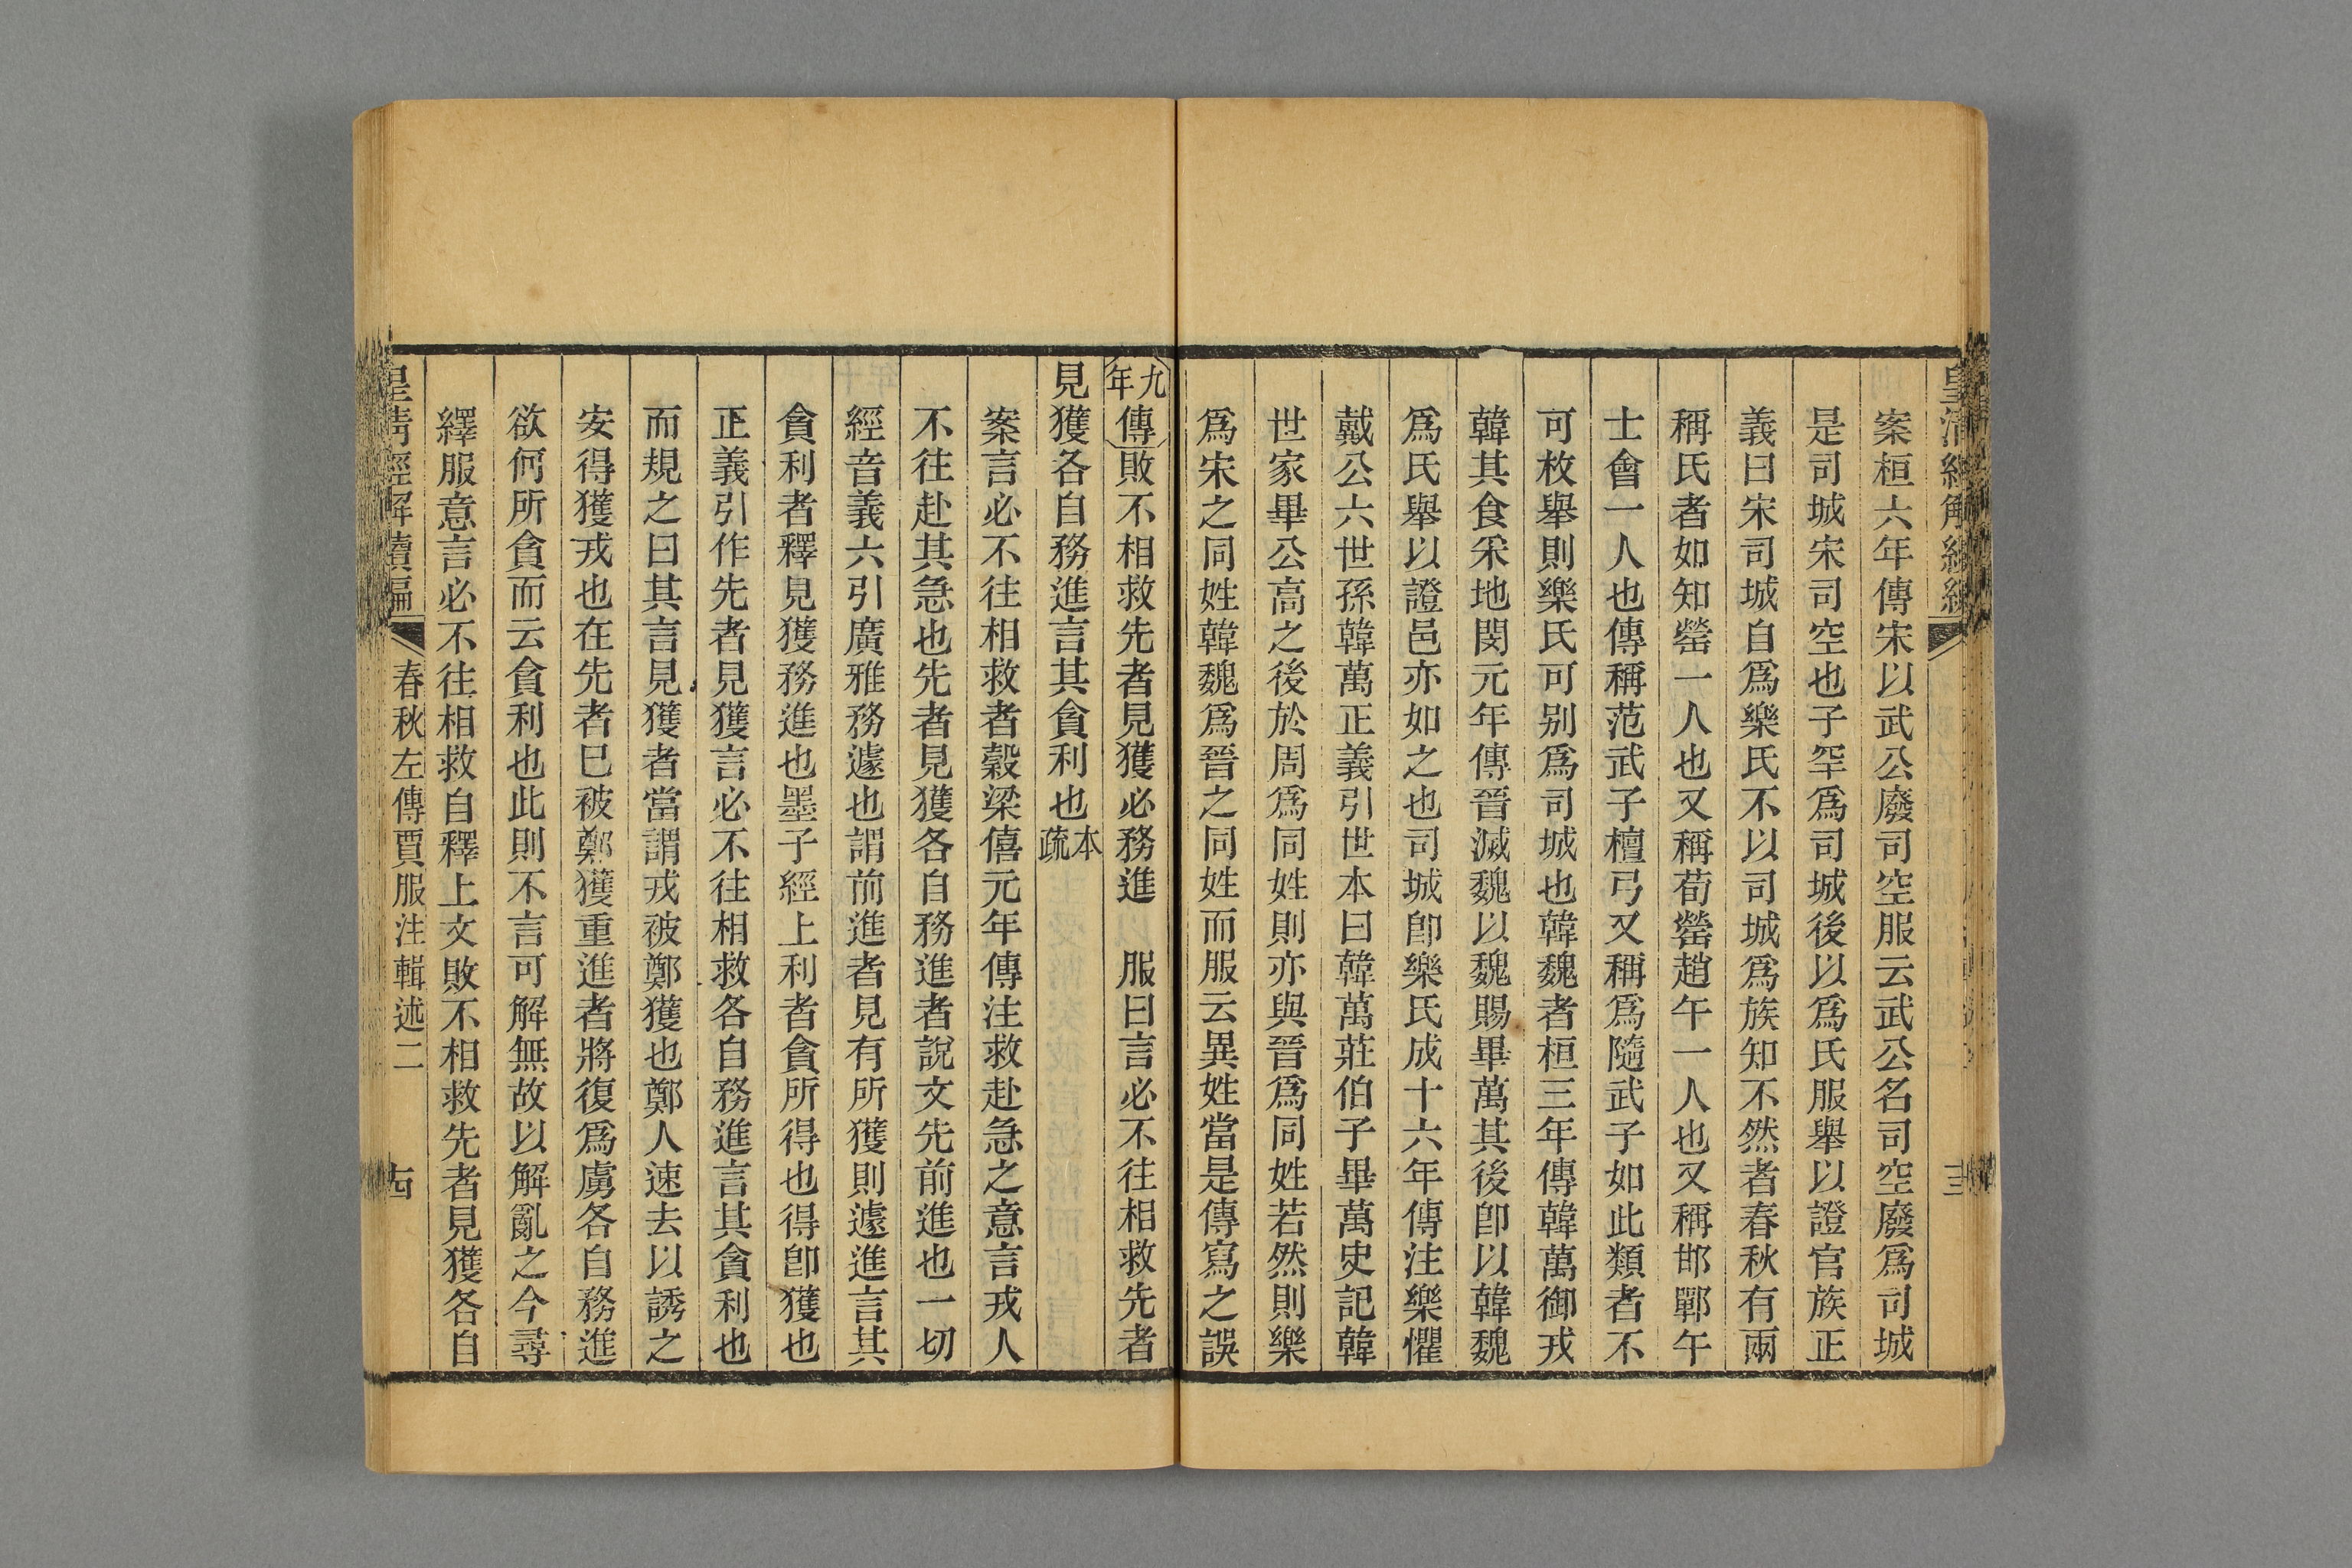 案桓六年傳宋以武公廢司空服云武公名司空廢爲司城
是司城宋司空也子罕爲司城後以爲氏服舉以證官族正
義曰宋司城自爲樂氏不以司城爲族知不然者春秋有兩
稱氏者如知罃一人也又稱荀罃趙午一人也又稱邯鄲午
士會一人也傳稱范武子檀弓又稱爲隨武子如此類者不
可枚舉則樂氏可別爲司城也韓魏者桓三年傳韓萬御戎
韓其食采地閔元年傳晉滅魏以魏賜畢萬其後卽以韓魏
爲氏舉以證邑亦如之也司城卽樂氏成十六年傳注樂懼
戴公六世孫韓萬正義引世本曰韓萬莊伯子畢萬史記韓
世家畢公高之後於周爲同姓則亦與晉爲同姓若然則樂
爲宋之同姓韓魏爲晉之同姓而服云異姓當是傳寫之誤
九年傳敗不相救先者見獲必務進　服曰言必不往相救先者
見獲各自務進言其貪利也本疏
案言必不往相救者穀梁僖元年傳注救赴急之意言戎人
不往赴其急也先者見獲各自務進者說文先前進也一切
經音義六引廣雅務遽也謂前進者見有所獲則遽進言其
貪利者釋見獲務進也墨子經上利者貪所得也得卽獲也
正義引作先者見獲言必不往相救各自務進言其貪利也
而規之曰其言見獲者當謂戎被鄭獲也鄭人速去以誘之
安得獲戎也在先者巳被鄭獲重進者將復爲虜各自務進
欲何所貪而云貪利也此則不言可解無故以解亂之今尋
繹服意言必不往相救自釋上文敗不相救先者見獲各自
皇清經解續編　春秋左傳賈服注輯述二　十四